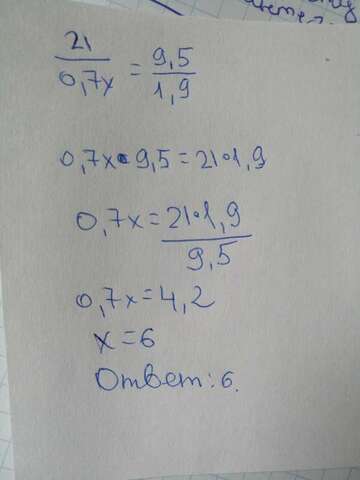 21/0,7x = 9,5/1,9
0,7x•9,5=21•1,9
0,7x=21•1,9/9,5
0,7x=4,2
x=6
Ответ: 6.